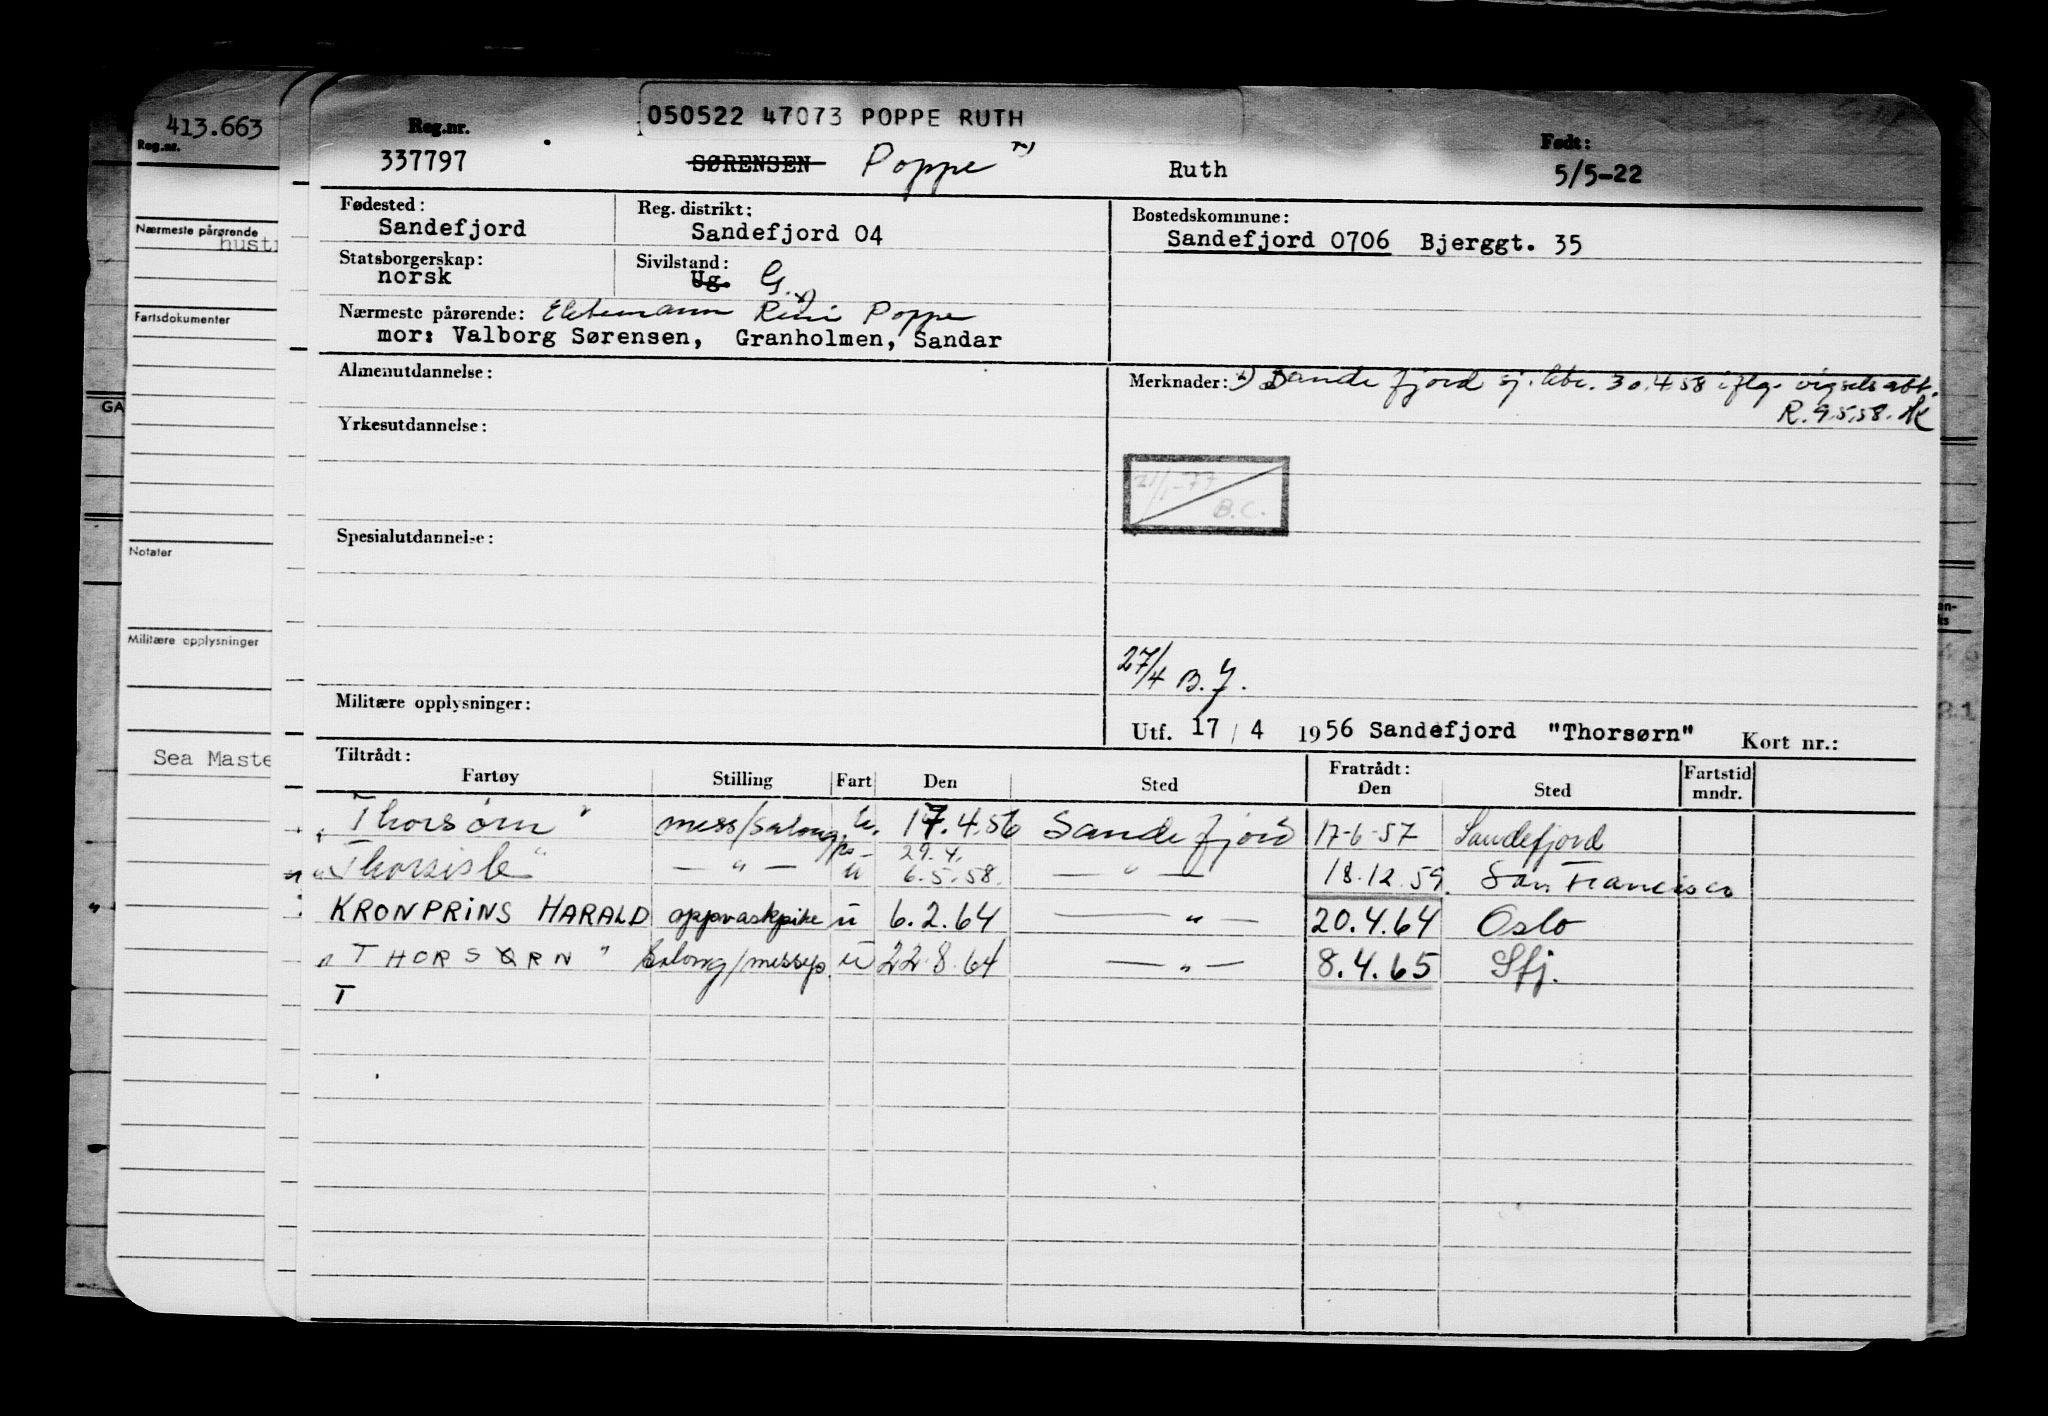 413.663
Reg.nr.
Nærmeste pårørende
hust
Fartsdokumenter
GA
Notater
Militære opplysninger
Sea Maste
050522 47073 POPPE RUTH
Reg.nr. Født:
337797 SØRENSEN Poppe x) Ruth 5/5-22
Fødested: Reg. distrikt: Bostedskommune:
Sandefjord Sandefjord 04 Sandefjord 0706 Bjerggt. 35
Statsborgerskap: Sivilstand:
norsk Ug. G. x)
Nærmeste pårørende: Ektemann Poppe
mor: Valborg Sørensen, Granholmen, Sandar
Almenutdannelse: Merknader: x) Sandefjord sj. ktr. 30.4.58 iflg. vigselsatt.
R. 9.5.58.
Yrkesutdannelse:
21/1-77
B.C.
Spesialutdannelse:
27/4 B.J.
Militære opplysninger:
Utf. 17 / 4 1956 Sandefjord "Thorsørn" Kort nr.:
Tiltrådt: Fratrådt: Fartstid
Fartøy Stilling Fart Den Sted Den Sted mndr.
"Thorsørn" mess/salong u. 17.4.56 Sandefjord 17-6-57 Sandefjord
29.4.
"Thorsisle" — " — u 6.5.58. — " — 18.12.59. San Francisco
KRONPRINS HARALD oppvaskpike u 6.2.64 — " — 20.4.64 Oslo
"THORSØRN" Salong/messep. u 22.8.64 — " — 8.4.65 Sfj.
T